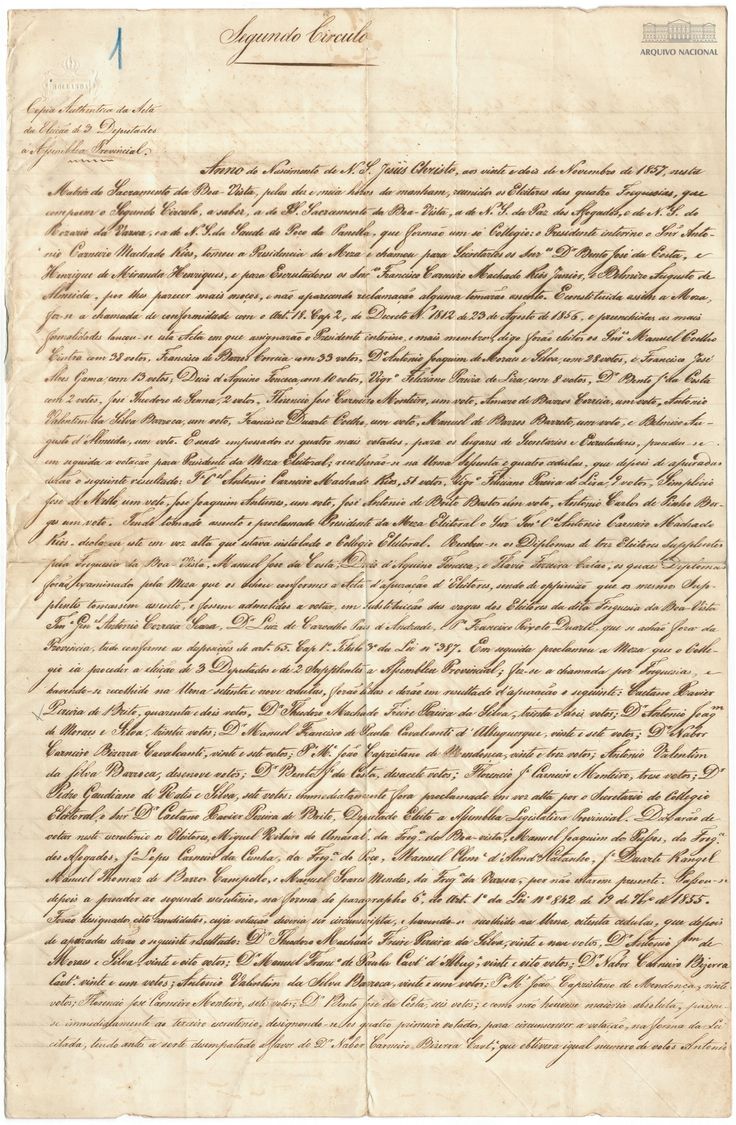 Segundo Circulo
1
ARQUIVO NACIONAL
HOLLANDA
Copia Authentica da Acta
da Eleição de 3 Deputados
a Assemblea Provincial.
Anno do Nascimento de N. S. Jesús Christo, aos vinte e dois de Novembro de 1857, nesta
Matriz do Sacramento da Boa-Vista, pelas dez e meia horas da manham, reunidos os Eleitores das quatro Freguesias, que
compoem o Segundo Circulo, a saber, a do SS. Sacramento da Boa-Vista, a de N. S. da Paz dos Afogados, e de N. S. do
Rozario da Varzea, e a de N. S. da Saude do Poço da Panella, que formão um só Collegio: o Presidente interino o Snr. Anto-
nio Carneiro Machado Rios, tomou a Presidencia da Meza e chamou para Secretarios os Snres. Dr. Bento José da Costa, e
Henrique de Miranda Henriques, e para Escrutadores os Snres. Francisco Carneiro Machado Rios Junior, e Belmiro Augusto de
Almeida, por lhes parecer mais moços, e não apparecendo reclamação alguma tomarão assento. E constituida assim a Meza,
fez-se a chamada de conformidade com o Art. 18. Cap. 2, do Decreto Nº 1812 de 23 de Agosto de 1856, e preenchidas as mais
formalidades lançou-se esta Acta em que assignarão o Presidente interino, e mais membros, digo forão eleitos os Snres. Manuel Coelho
Cintra com 38 votos, Francisco de Barros Correia com 33 votos, Dr. Antonio Joaquim de Moraes e Silva, com 28 votos, e Francisco José
Alves Gama, com 13 votos; Decio d'Aquino Fonseca, com 10 votos, Vigro. Feliciano Pereira de Lira, com 8 votos, Dr. Bento J. da Costa
com 2 votos, José Theodoro de Senna, 2 votos, Florencio José Carneiro Monteiro, um voto, Amaro de Barros Correia, um voto, Antonio
Valentim da Silva Barroca, um voto, Francisco Duarte Coelho, um voto, Manuel de Barros Barreto, um voto, e Belmiro Au-
gusto d'Almeida, um voto. E sendo empossados os quatro mais votados, para os lugares de Secretarios e Escrutadores, procedeu-se
em seguida a votação para Presidente da Meza Eleitoral; recolherão-se na Urna setenta e quatro cedulas, que depois de apuradas
derão o seguinte resultado: Antonio Carneiro Machado Rios, 51 votos, Vigro. Feliciano Pereira de Lira, votos, Simplicio
José de Mello, um voto, José Joaquim Antunes, um voto, José Antonio de Brito Bastos um voto, Antonio Carlos de Pinho Bor-
ges um voto. Tendo tomado assento e proclamado Presidente da Meza Eleitoral o Snr. Antonio Carneiro Machado
Rios, declarou este em voz alta que estava instalado o Collegio Eleitoral. Receberão-se os Diplomas de tres Eleitores Supplentes
pela Freguesia da Boa-Vista, Manuel José da Costa, Decio d'Aquino Fonseca, e Flavio Ferreira Catão, os quaes Diplomas
forão examinados pela Meza que os achou conformes a Acta d'apuração d'Eleitores, sendo de oppinião que os mesmos Sup-
plentes tomassem assento, e fossem admettidos a votar, em substituição das vagas dos Eleitores da dita Freguesia da Boa-Vista
Antonio Correia Seara, Dr. Luiz de Carvalho Paes d'Andrade, Francisco Peixoto Duarte, que se achão fora da
Provincia, tudo conforme as disposições do art. 65. Cap. 1º Titulo 3º da Lei nº 387. Em seguida proclamou a Meza que o Colle-
gio ia proceder a eleição de 3 Deputados e de 2 Supplentes a Assemblea Provincial; fez-se a chamada por Freguesias, e
havendo-se recolhido na Urna setenta e nove cedulas, forão lidas e derão em resultado d'apuração o seguinte: Caetano Xavier
Pereira de Brito, quarenta e dois votos, Dr. Theodoro Machado Freire Pereira da Silva, trinta e dois votos; Dr. Antonio Joaqm
de Moraes e Silva, trinta votos; Dr. Manuel Francisco de Paula Cavalcanti d'Albuquerque, vinte e sete votos; Dr. Nabor
Carneiro Bizerra Cavalcanti, vinte e sete votos; Pe. Ml. João Capristano de Mendonça, vinte e tres votos; Antonio Valentim
da Silva Barroca, desenove votos; Dr. Bento J. da Costa, desacete votos; Florencio J. Carneiro Monteiro, trese votos; Dr.
Pedro Gaudiano de Ratis e Silva, sete votos: immediatamente fora proclamado em voz alta por o Secretario do Collegio
Eleitoral, o Snr. Dr. Caetano Xavier Pereira de Brito, Deputado Eleito a Assemblea Legislativa Provincial. Deixarão de
votar neste escrutinio os Eleitores, Miguel Ribeiro do Amaral, da Freg. da Boa-vista, Manuel Joaquim do Passos, da Freg.
dos Afogados, J. Lopes Carneiro da Cunha, da Freg. do Poço, Manuel, J. Duarte Rangel
Manuel Thomaz de Barros Campello, e Manuel Soares Mendes, da Freg. da Varzea, por não estarem presente. Passou-se
depois a proceder ao segundo escrutinio, na forma do paragrapho 6º do Art. 1º da Lei nº 842 de 19 de 7bro de 1855.
Forão designados oito candidatos, cuja votação deveria ser circunscripta, e havendo-se recolhido na Urna oitenta cedulas, que depois
de apuradas derão o seguinte resultado: Dr. Theodoro Machado Freire Pereira da Silva, vinte e nove votos, Dr. Antonio Jm de
Moraes e Silva, vinte e oito votos; Dr. Manuel Franco de Paula Cavti d'Albuqe, vinte e oito votos; Dr. Nabor Carneiro Bizerra
Cavti vinte e um votos; Antonio Valentim da Silva Barroca, vinte e um votos; Pe. Ml. João Capristano de Mendonça, vinte
votos; Florencio José Carneiro Monteiro, sete votos; Dr. Bento José da Costa, seis votos; e como não houvesse maioria absoluta, passou-
se immediatamente ao terceiro escrutinio, designando-se os quatro primeiros votados, para circunscrever a votação, na forma da Lei
citada, tendo antes a sorte desempatado a favor do Dr. Nabor Carneiro Bizerra Cavti, que obtivera igual numero de votos Antonio